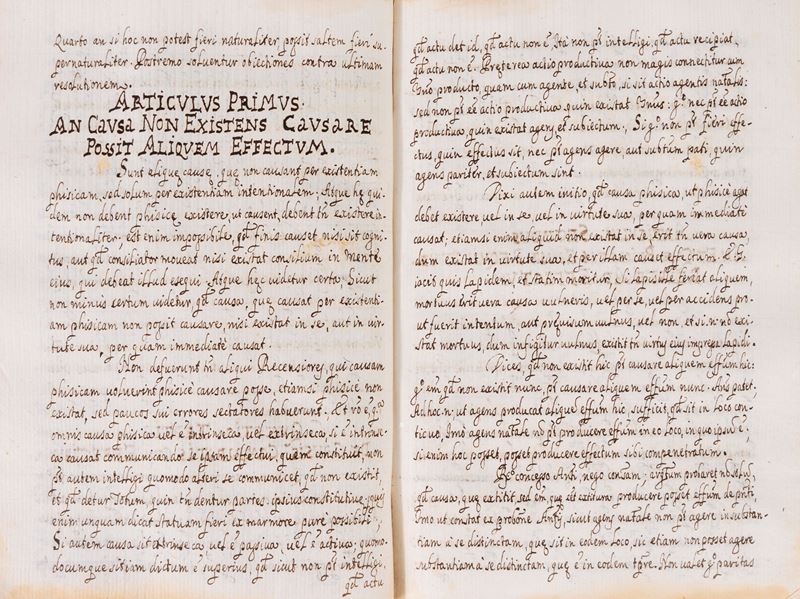 Quarto an si hoc non potest fieri naturaliter, possit saltem fieri su-
pernaturaliter. Postremo soluentur obiectiones contra ultimam
resolutionem.
ARTICULUS PRIMUS.
AN CAUSA NON EXISTENS CAUSARE
POSSIT ALIQUEM EFFECTUM.
Sunt aliquę causę, quę non causant per existentiam
phisicam, sed solum per existentiam intentionalem; Atque hę qui-
dem non debent phisicę existere, ut causent, debent tn existere in-
tentionaliter; est enim impossibile, qd finis causet nisi sit cogni-
tus, aut qd consiliator moueat nisi existat consilium in mente
eius, qui debeat illud exequi. Atque hęc uidetur certa; Sicut
non minus certum uidetur, qd causa, quę causat per existenti-
am phisicam non possit causare, nisi existat in se, aut in uir-
tute sua, per quam immediatè causat.
Non defuerunt tn aliqui Recensiores, qui causam
phisicam uoluerint phisicè causare posse, etiamsi phisicè non
existat, sed paucos sui errores sectatores habuerunt. Et
omnis causa phisica uel ē intrinseca, uel extrinseca, si ē intrinse-
ca causat communicando se ipsam effectui, quem constituit, non
pt autem intelligi quomodo alteri se communicet, qd non existit,
et qd detur totum, quin tn dentur partes ipsius constitutiuę; quis
enim unquam dicat statuam fieri ex marmore purè possibili;
Si autem causa sit extrinseca, uel ē passiua, uel ē actiua, quomo-
documque sit iam dictum ē superius, qd sicut non pt intelligi,
qd actu
qd actu det id, qd actu non ē. Ità non pt intelligi, qd actu recipiat,
qd actu non ē. Pręterea actio productiua non magis connectitur cum
Tńo producto, quam cum agente, et subto, si sit actio agentis natalis:
sed non pt ee actio productiua, quin existat Tńus: g. nec pt ee actio
productiua, quin existat agens, et subiectum. Si g. non pt fieri effe-
ctus, quin effectus sit, nec pt agens agere, aut subtum pati, quin
agens pariter, et subiectum sint.
Dixi autem initio, qd causa phisica, ut phisicè agat
debet existere uel in se, uel in uirtute sua, per quam immediatè
causat; etiamsi enim aliquid non existat in se, erit tn uera causa,
dum existat in uirtute sua, et per illam causet effectum.
iacit quis lapidem, et statim moritur, si lapis ille feriat aliquem,
mortuus erit uera causa uulneris, uel per se, uel per accidens pro-
ut fuerit intentum, aut pręuisum uulnus, uel non, et si n. nō exi-
stat mortuus, dum infligitur uulnus, existit tn uirtus eius impressa lapidi.
Dices, qd non existit hic pt causare aliquem effum hic:
g. em qd non existit nunc, pt causare aliquem effum nunc. Ans patet.
Ad hoc. n. ut agens producat aliqud effum hic, sufficit, qd sit in loco con-
tiguo, Imò agens natale nō pt producere effum in eo loco, in quo ipsum ē;
si enim hoc posset, posset producere effectum sibi compenetratum.
concesso Anti, nego consam; argtum probaret
qd causa, quę extitit, sed em, quę extitura producere posset effum de pńti,
Imo ut constat ex probone Antis, sicut agens natale non pt agere in substan-
tiam a se distinctam, quę sit in eodem loco, sic etiam non posset agere
substantiam a se distinctam, quę ē in eodem tpre. Non ualet g. paritas